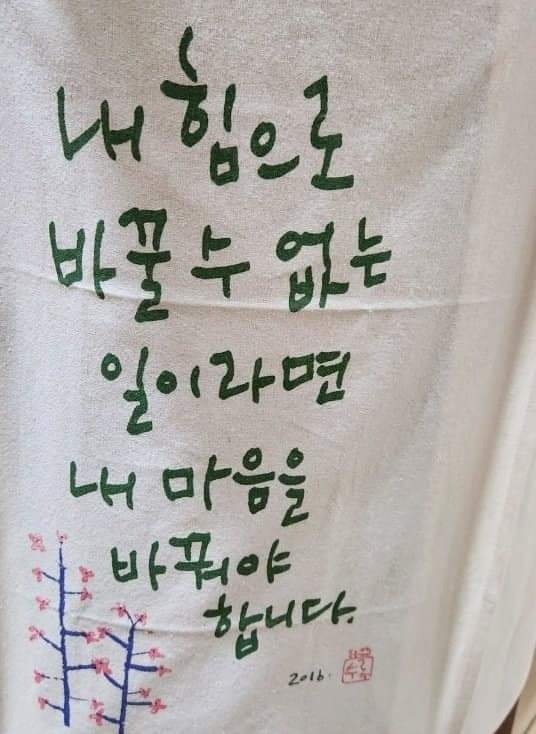 내 힘으로
바꿀 수 없는
일이라면
내 마음을
바꿔야
합니다.
2016.